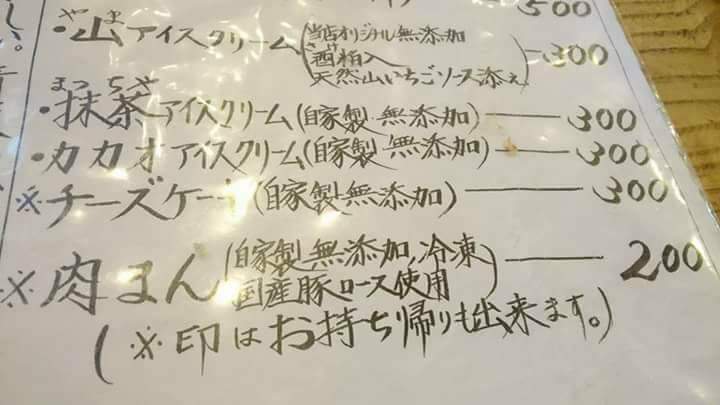 500
やま
・山アイスクリーム(当店オリジナル無添加
酒粕入
天然山いちごソース添え) 300
まっちゃ
・抹茶アイスクリーム(自家製.無添加) 300
・カカオアイスクリーム(自家製.無添加) 300
※チーズケーキ(自家製.無添加) 300
※肉まん(自家製.無添加,冷凍
国産豚ロース使用) 200
(※印はお持ち帰りも出来ます。)